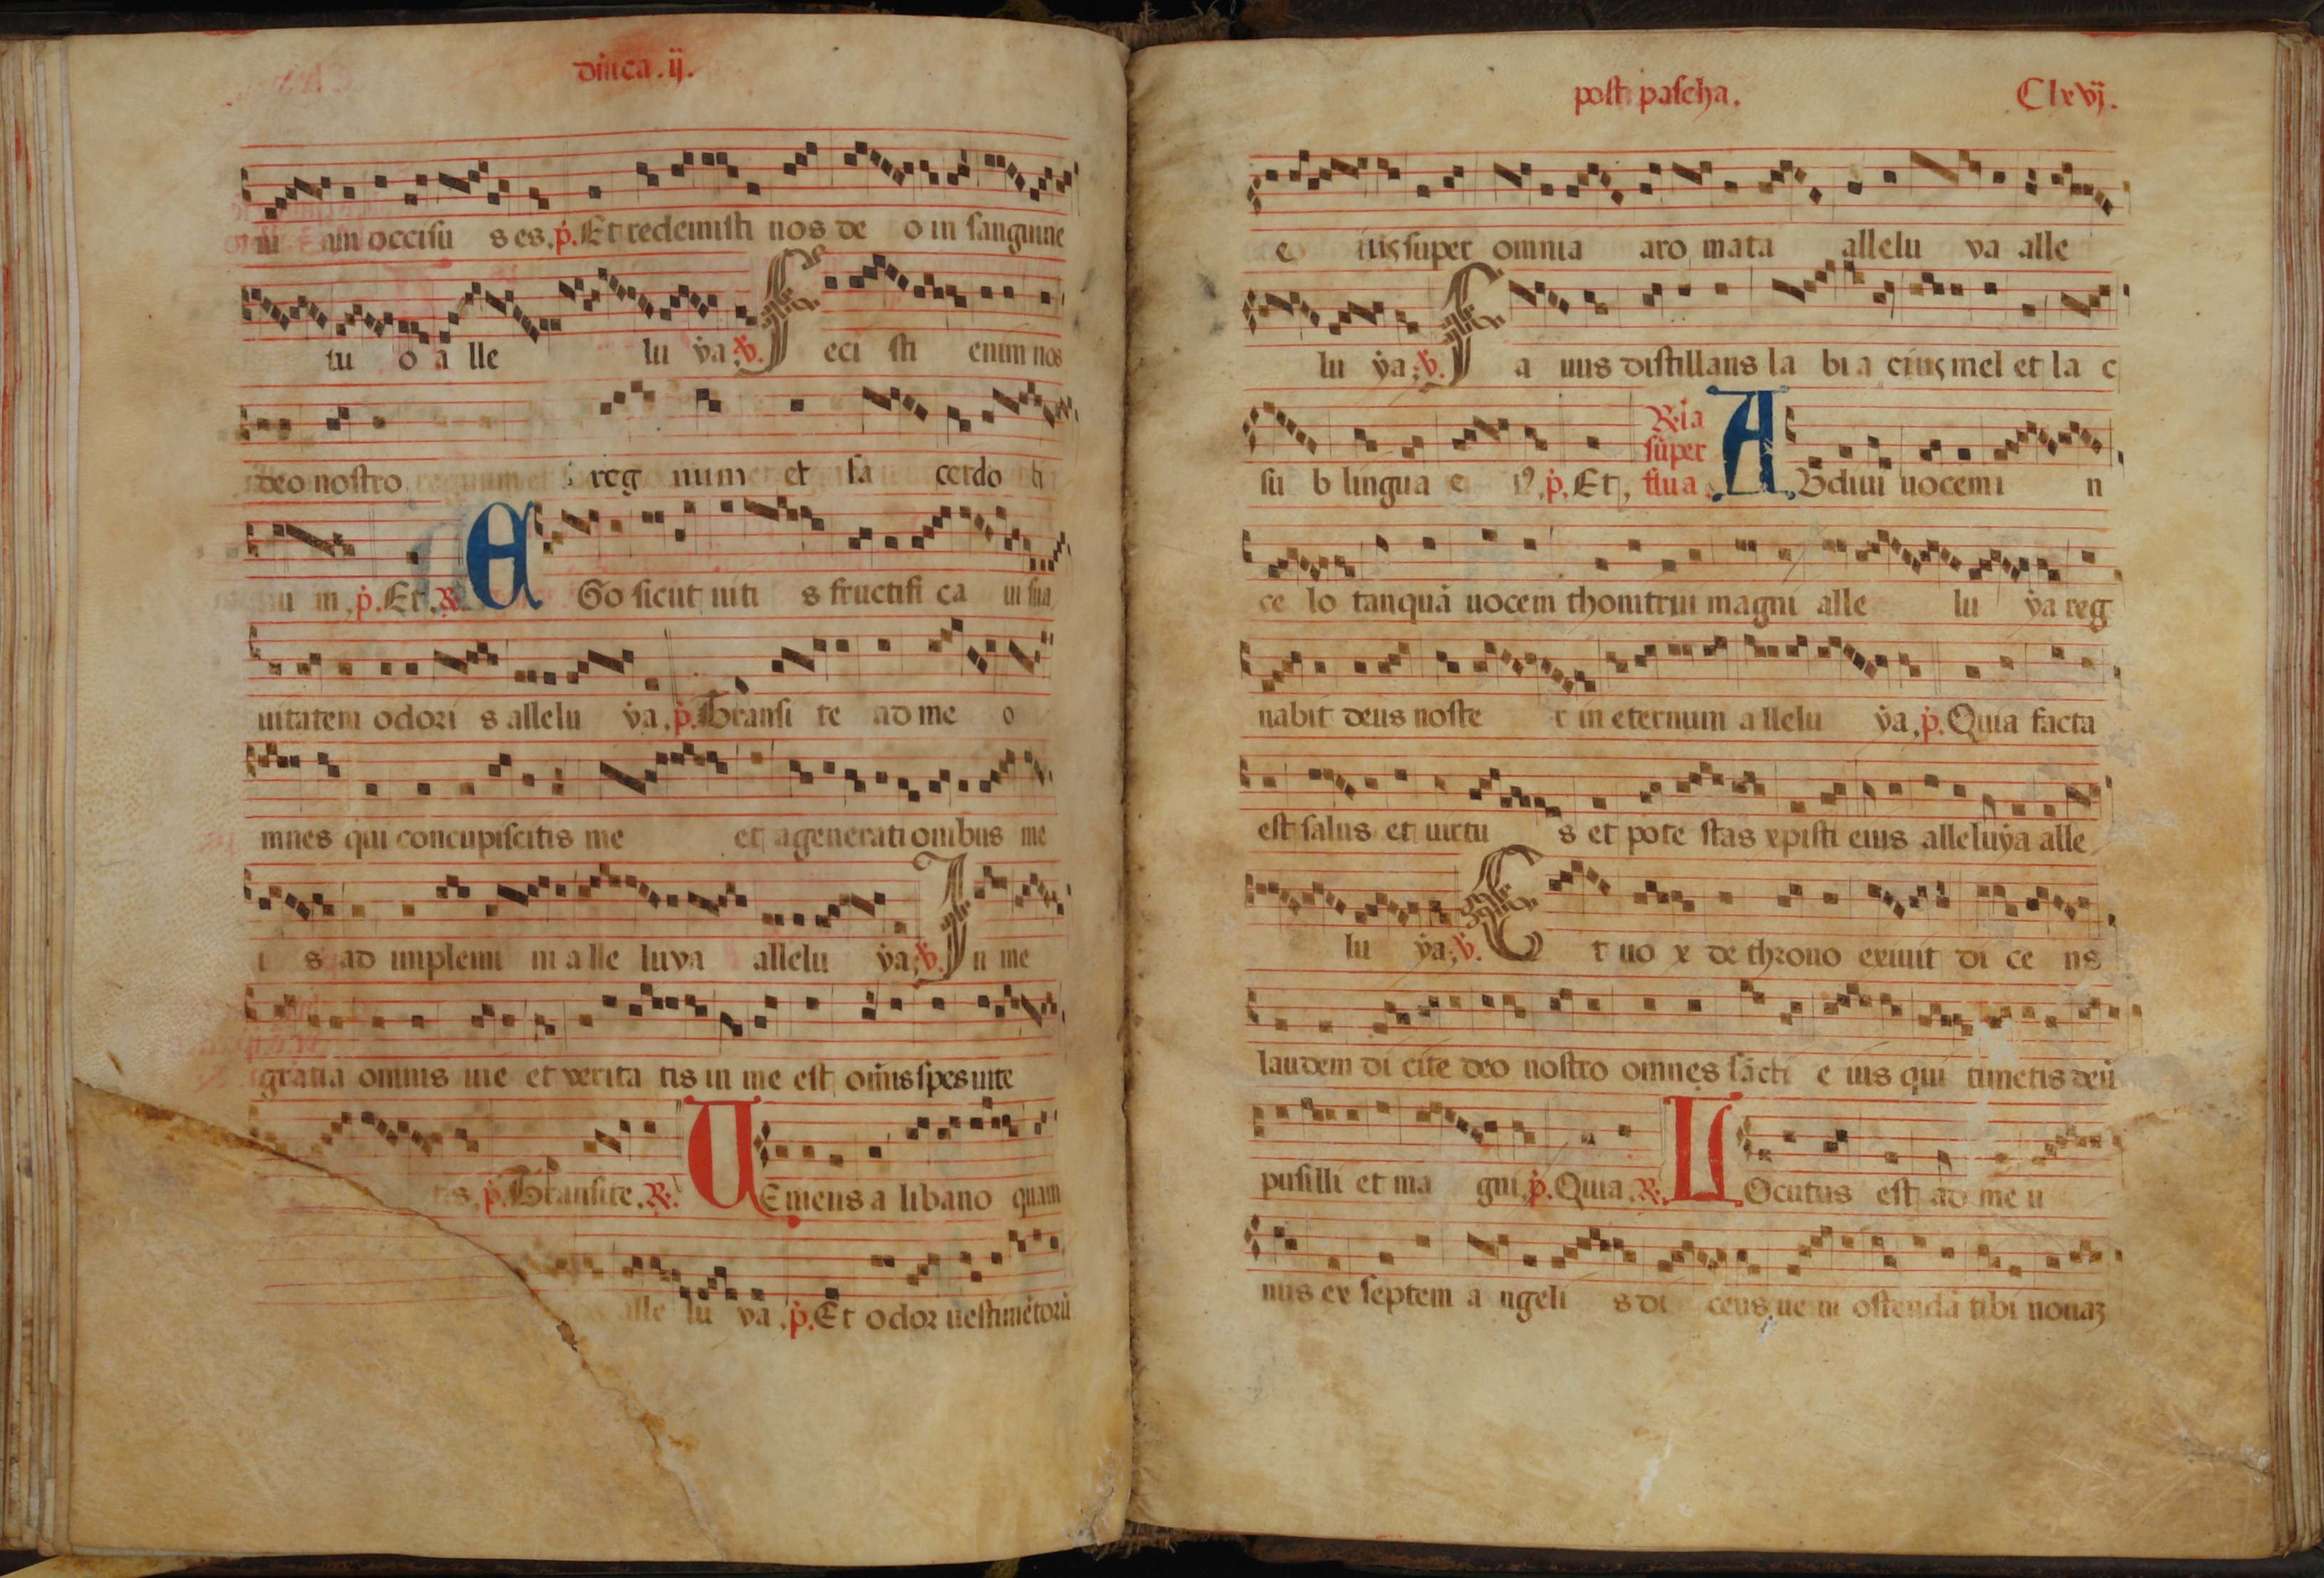 dn̄ica .ij.
ni am occisu s es. p̄. Et redemisti nos de o in sanguine
tu o a lle lu ẏa: v̄. F eci sti enim nos
deo nostro reg num et sa cerdo ti
u m, p̄. Et. R. E Go sicut uiti s fructifi ca ui sua
uitatem odori s allelu ẏa. p̄. Transi te ad me o
mnes qui concupiscitis me et a generati onibus me
i s ad impleni m a lle luya allelu ẏa: v̄. I n me
gratia omnis uie et verita tis in me est om̄is spes uite
tis. p̄. Transite. R. U Eniens a libano quam
alle lu ya. p̄. Et odor uestimētorū
post pascha. Clxvj.
e ius super omnia aro mata allelu ya alle
lu ẏa: v̄. F a uus distillans la bi a eius mel et la c
su b lingua e iꝰ. p̄. Et, R. ia super flua. A Udiui uocem i n
ce lo tanquā uocem thonitrui magni alle lu ẏa reg
nabit deus noste r in eternum a llelu ẏa. p̄. Quia facta
est salus et uirtu s et pote stas xpisti eius alleluẏa alle
lu ẏa: v̄. E t uo x de throno exiuit di ce ns
laudem di cite deo nostro omnes sācti e ius qui timetis deū
pusilli et ma gni, p̄. Quia. R. L Ocutus est ad me u
nus ex septem a ngeli s di cens ueni ostendā tibi nouaꝫ